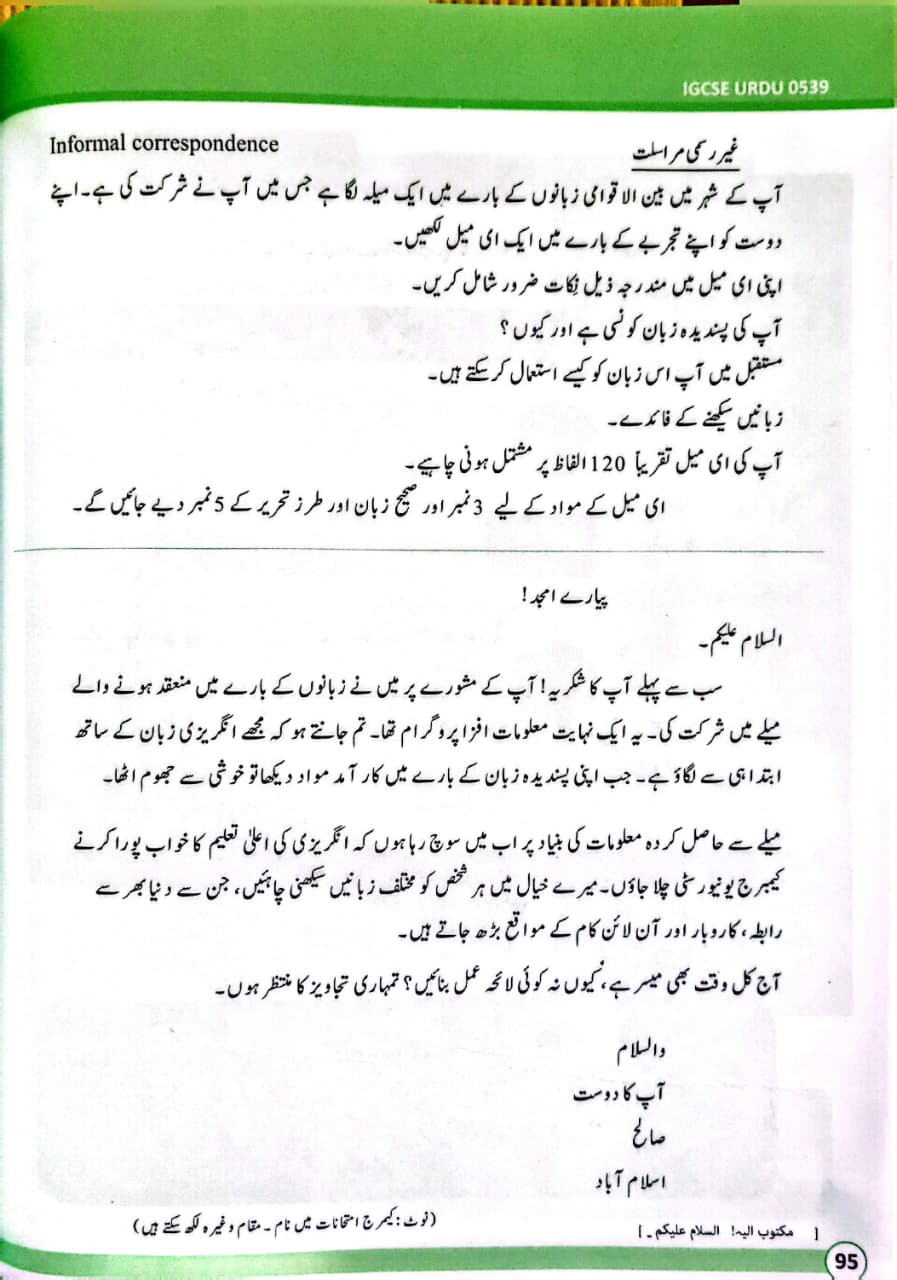 IGCSE URDU 0539
Informal correspondence
غیر رسمی مراسلت
آپ کے شہر میں بین الاقوامی زبانوں کے بارے میں ایک میلہ لگا ہے جس میں آپ نے شرکت کی ہے۔ اپنے
دوست کو اپنے تجربے کے بارے میں ایک ای میل لکھیں۔
اپنی ای میل میں مندرجہ ذیل نکات ضرور شامل کریں۔
آپ کی پسندیدہ زبان کونسی ہے اور کیوں؟
مستقبل میں آپ اس زبان کو کیسے استعمال کر سکتے ہیں۔
زبانیں سیکھنے کے فائدے۔
آپ کی ای میل تقریباً 120 الفاظ پر مشتمل ہونی چاہیے۔
ای میل کے مواد کے لیے 3 نمبر اور صحیح زبان اور طرز تحریر کے 5 نمبر دیے جائیں گے۔
پیارے امجد!
السلام علیکم۔
سب سے پہلے آپ کا شکریہ! آپ کے مشورے پر میں نے زبانوں کے بارے میں منعقد ہونے والے
میلے میں شرکت کی۔ یہ ایک نہایت معلومات افزا پروگرام تھا۔ تم جانتے ہو کہ مجھے انگریزی زبان کے ساتھ
ابتدا ہی سے لگاؤ ہے۔ جب اپنی پسندیدہ زبان کے بارے میں کار آمد مواد دیکھا تو خوشی سے جھوم اٹھا۔
میلے سے حاصل کردہ معلومات کی بنیاد پر اب میں سوچ رہا ہوں کہ انگریزی کی اعلیٰ تعلیم کا خواب پورا کرنے
کیمبرج یونیورسٹی چلا جاؤں۔ میرے خیال میں ہر شخص کو مختلف زبانیں سیکھنی چاہئیں، جن سے دنیا بھر سے
رابطہ، کاروبار اور آن لائن کام کے مواقع بڑھ جاتے ہیں۔
آج کل وقت بھی میسر ہے، کیوں نہ کوئی لائحہ عمل بنائیں؟ تمہاری تجاویز کا منتظر ہوں۔
والسلام
آپ کا دوست
صالح
اسلام آباد
[ مکتوب الیہ! السلام علیکم۔ ] (نوٹ: کیمرج امتحانات میں نام۔ مقام وغیرہ لکھ سکتے ہیں)
95